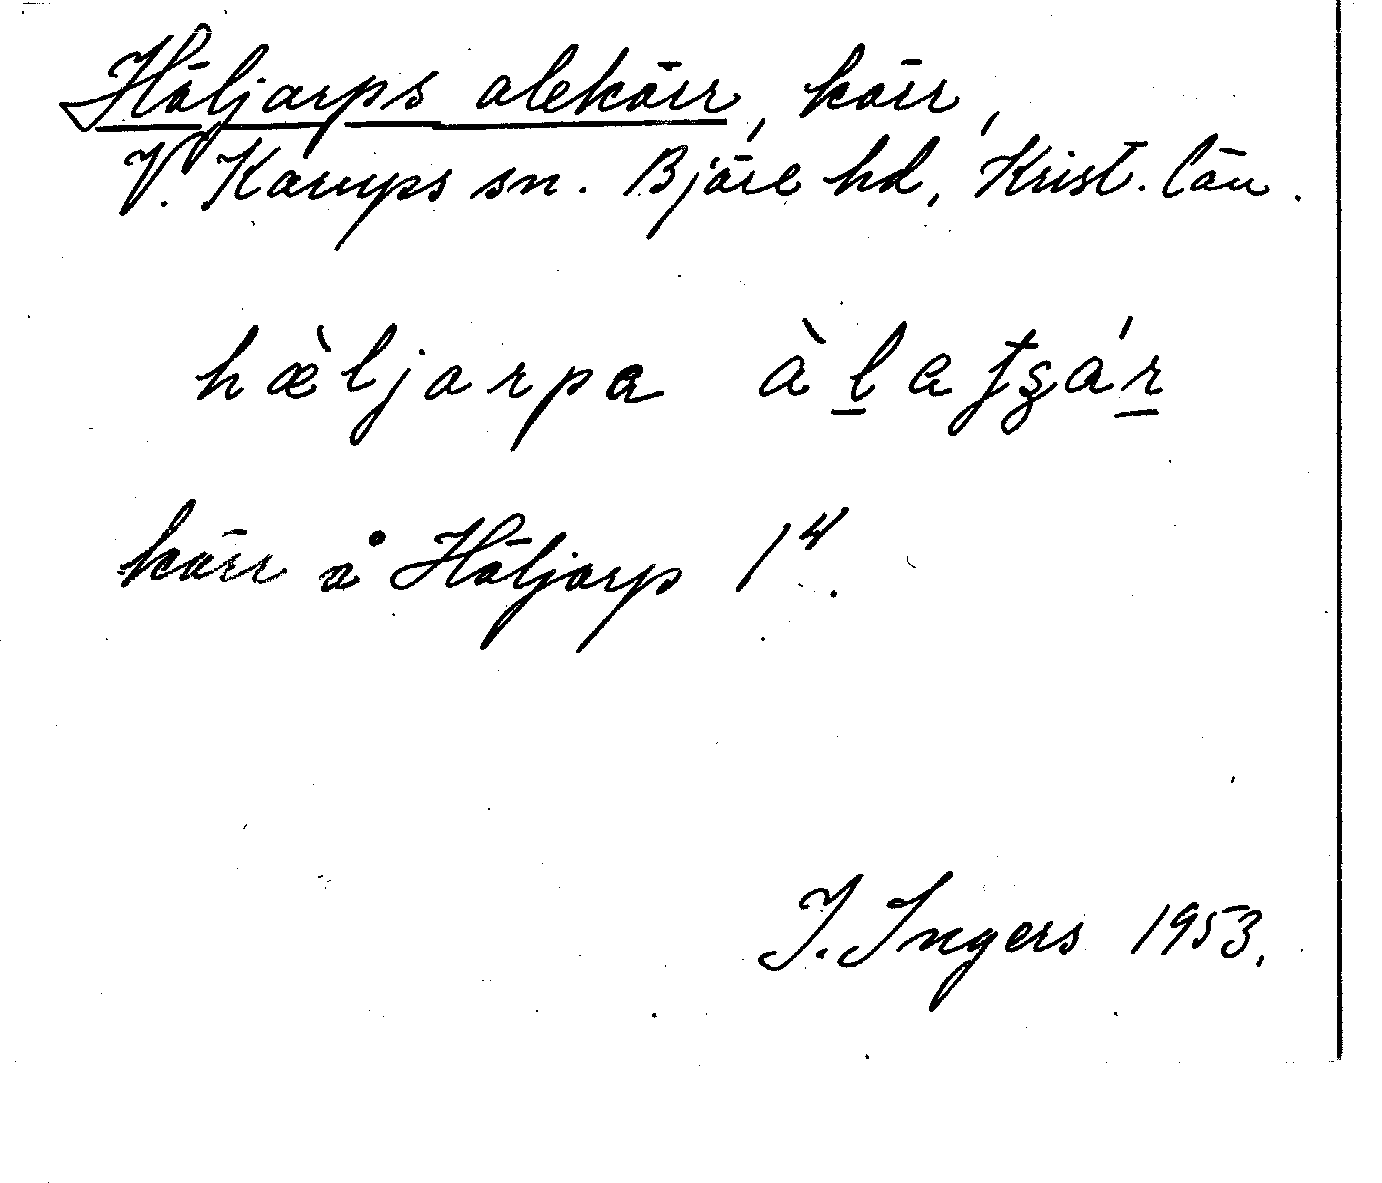 Häljarps alekärr, kärr,
V. Karups sn. Bjäre hd, Krist. län.
hæ̀ljarpa àlaʈʂár
kärr å Häljarp 1⁴.
I. Ingers 1953.